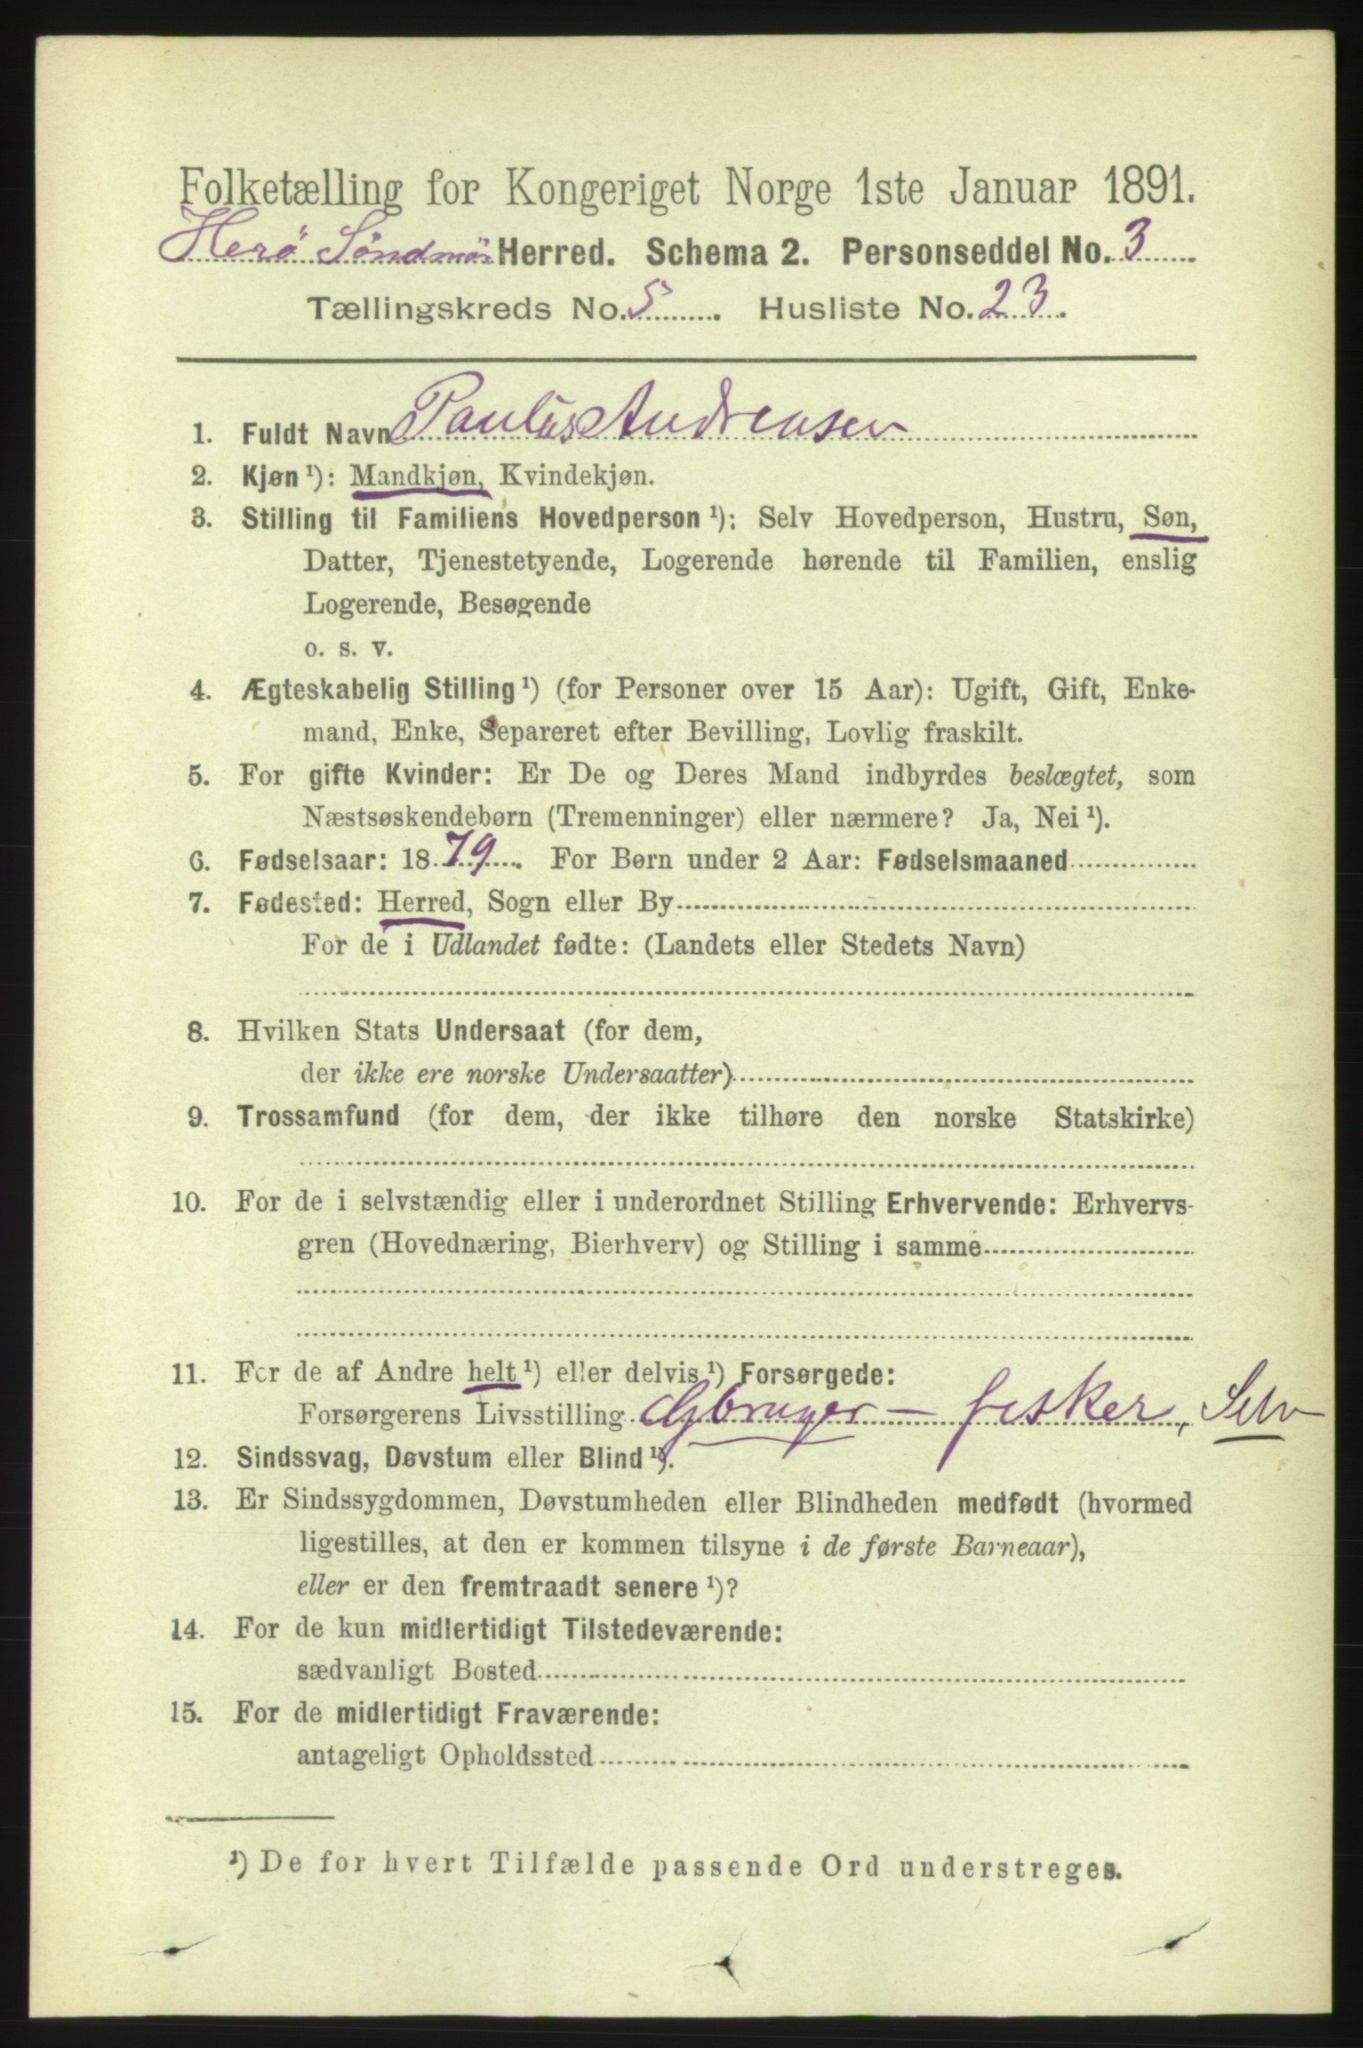 Folketælling for Kongeriget Norge 1ste Januar 1891.
Herö Söndmör Herred. Schema 2. Personseddel No. 3
Tællingskreds No. 5. Husliste No. 23.
1. Fuldt Navn Paulus Andreasen
2. Kjøn ¹): Mandkjøn, Kvindekjøn.
3. Stilling til Familiens Hovedperson ¹): Selv Hovedperson, Hustru, Søn,
Datter, Tjenestetyende, Logerende hørende til Familien, enslig
Logerende, Besøgende
o. s. v.
4. Ægteskabelig Stilling ¹) (for Personer over 15 Aar): Ugift, Gift, Enke-
mand, Enke, Separeret efter Bevilling, Lovlig fraskilt.
5. For gifte Kvinder: Er De og Deres Mand indbyrdes beslægtet, som
Næstsøskendebørn (Tremenninger) eller nærmere? Ja, Nei ¹).
6. Fødselsaar: 1879. For Børn under 2 Aar: Fødselsmaaned
7. Fødested: Herred, Sogn eller By
For de i Udlandet fødte: (Landets eller Stedets Navn)
8. Hvilken Stats Undersaat (for dem,
der ikke ere norske Undersaatter)
9. Trossamfund (for dem, der ikke tilhøre den norske Statskirke)
10. For de i selvstændig eller i underordnet Stilling Erhvervende: Erhvervs-
gren (Hovednæring, Bierhverv) og Stilling i samme
11. For de af Andre helt ¹) eller delvis ¹) Forsørgede:
Forsørgerens Livsstilling Gbruger – fisker, Selv
12. Sindssvag, Døvstum eller Blind ¹).
13. Er Sindssygdommen, Døvstumheden eller Blindheden medfødt (hvormed
ligestilles, at den er kommen tilsyne i de første Barneaar),
eller er den fremtraadt senere ¹)?
14. For de kun midlertidigt Tilstedeværende:
sædvanligt Bosted
15. For de midlertidigt Fraværende:
antageligt Opholdssted
¹) De for hvert Tilfælde passende Ord understreges.